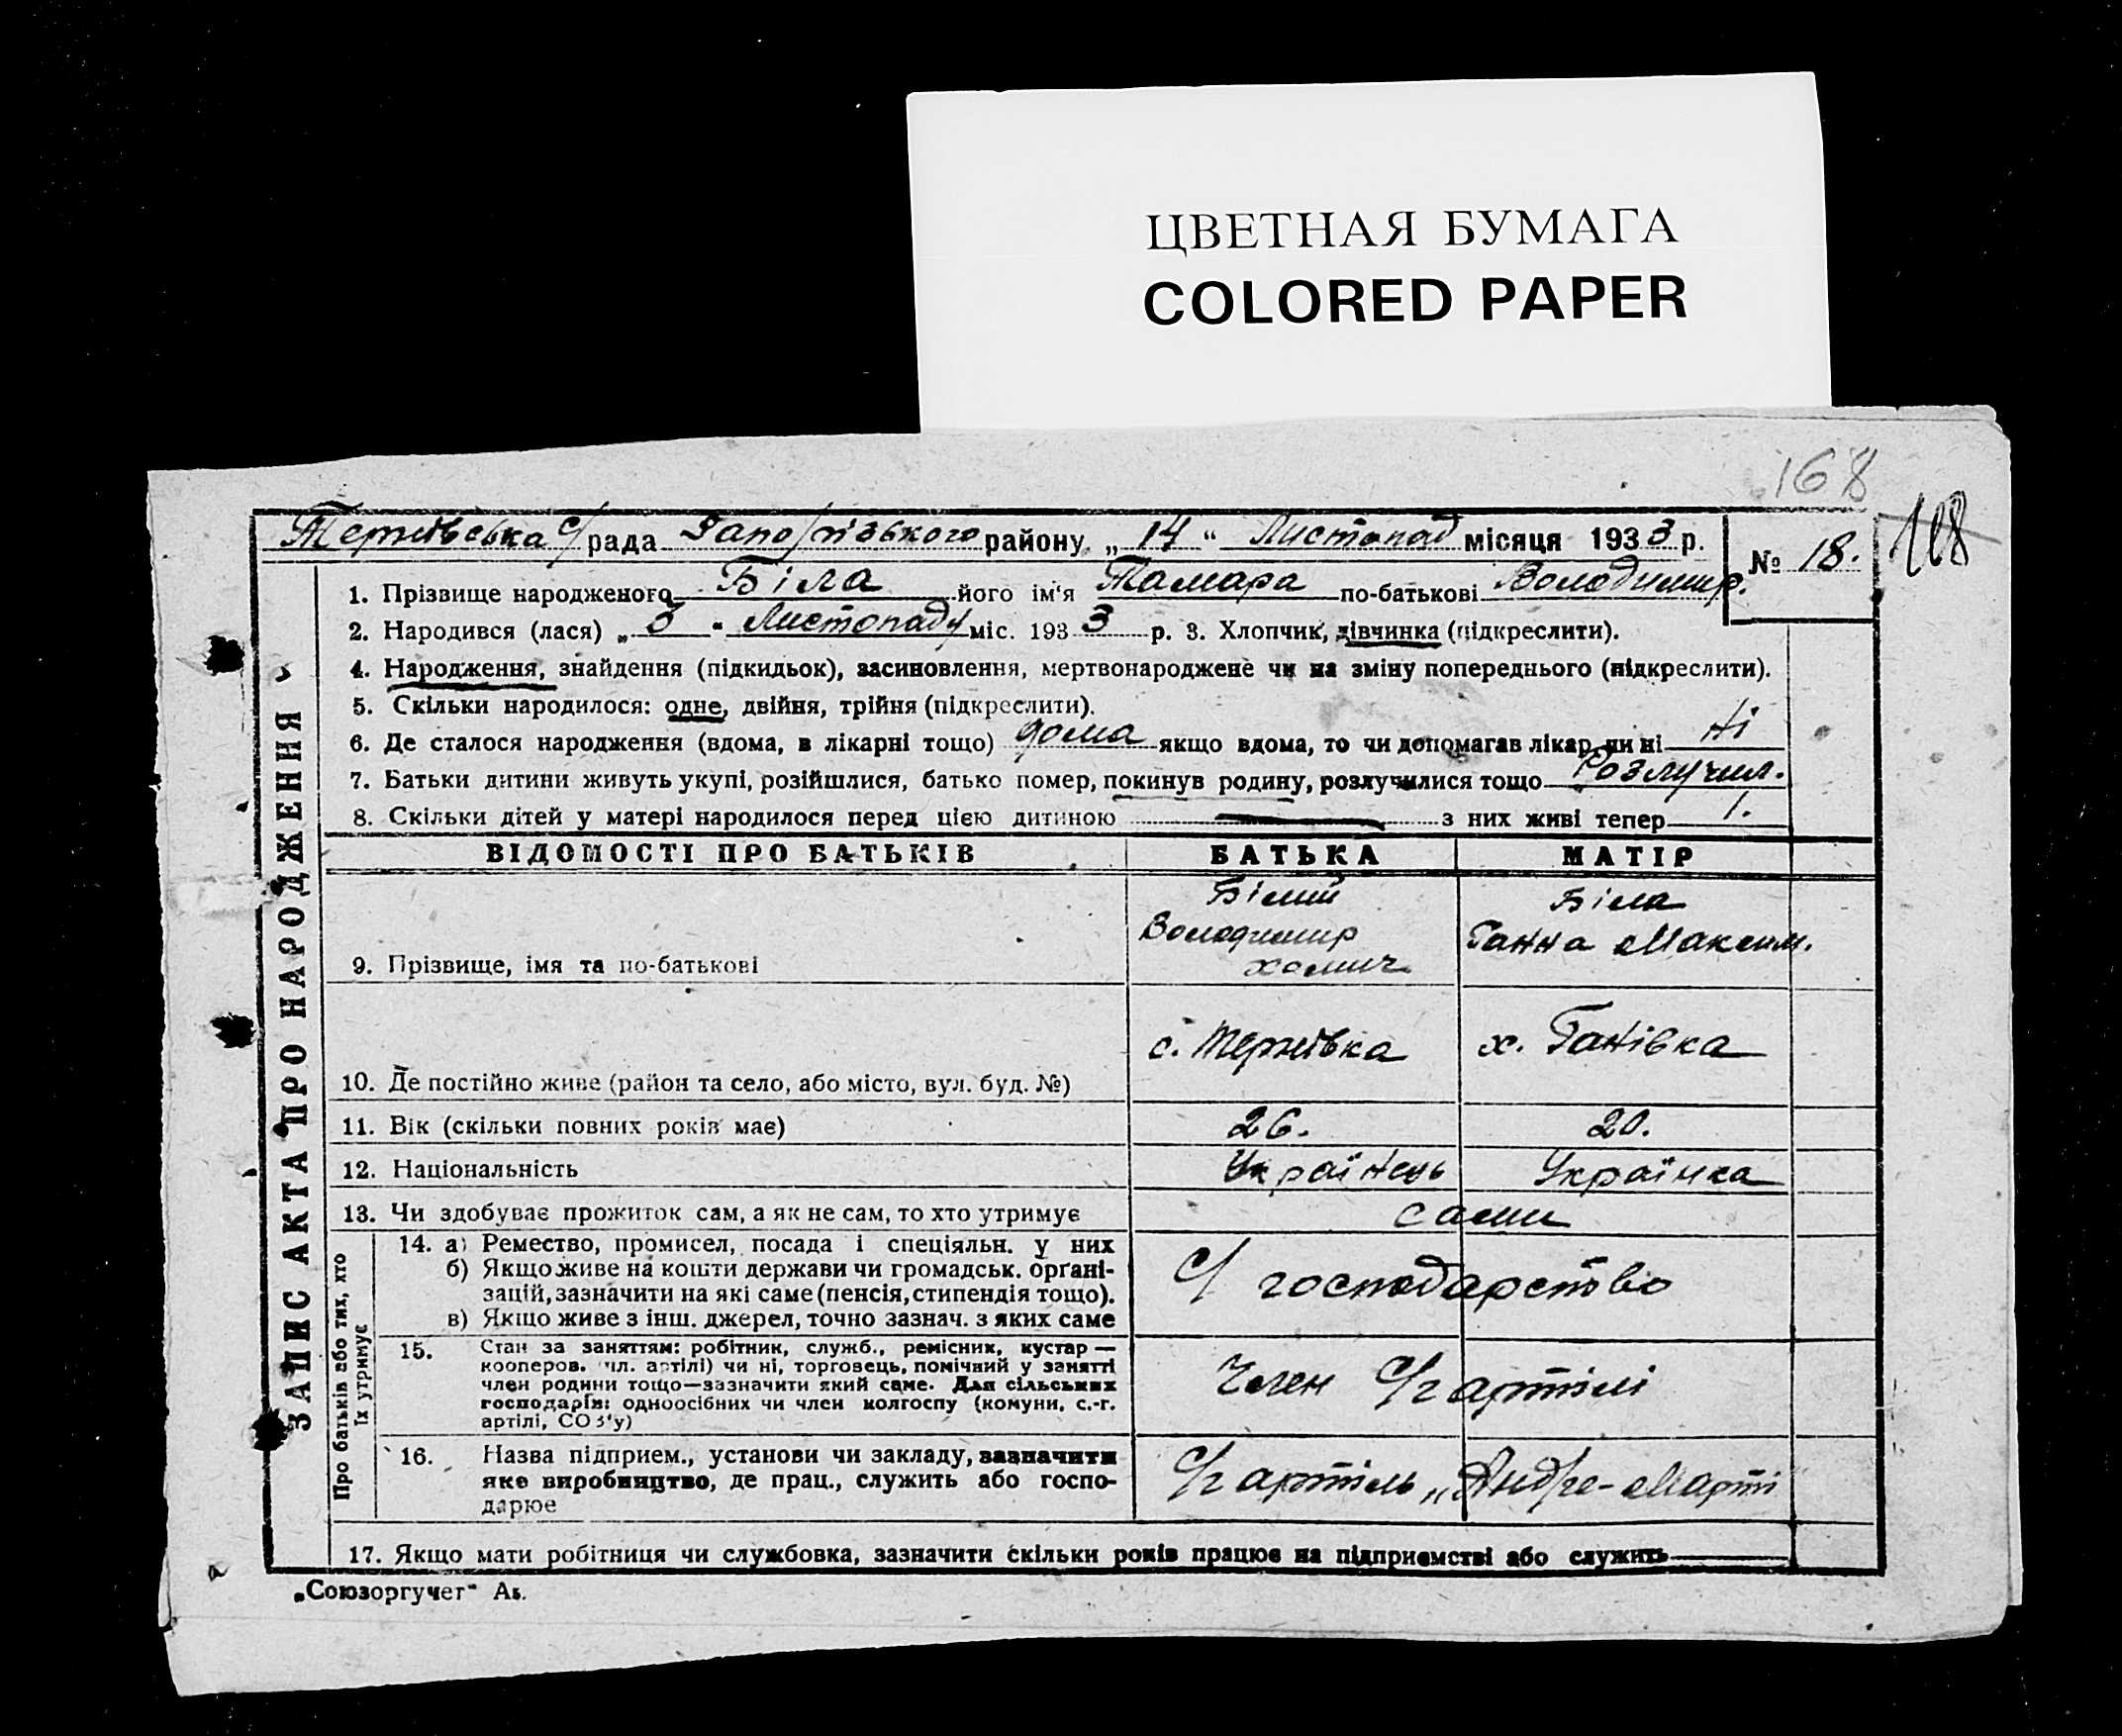 ЦВЕТНАЯ БУМАГА
COLORED PAPER
168
168
Тернівська с/рада Запорізького району „14“ Листопад місяця 1933 р.
№ 18.
ЗАПИС АКТА ПРО НАРОДЖЕННЯ
1. Прізвище народженого Біла його ім‘я Тамара по-батькові Володимир.
2. Народився (лася) „3“ Листопаду міс. 1933 р. 3. Хлопчик, дівчинка (підкреслити).
4. Народження, знайдення (підкидьок), засиновлення, мертвонароджене чи на зміну попереднього (підкреслити).
5. Скільки народилося: одне, двійня, трійня (підкреслити).
6. Де сталося народження (вдома, в лікарні тощо) дома якщо вдома, то чи допомагав лікар чи ні Ні
7. Батьки дитини живуть укупі, розійшлися, батько помер, покинув родину, розлучилися тощо Розлучил.
8. Скільки дітей у матері народилося перед цією дитиною — з них живі тепер 1.
ВІДОМОСТІ ПРО БАТЬКІВ БАТЬКА МАТІР
9. Прізвище, імя та по-батькові
Білий
Володимир
Хомич
Біла
Ганна Максим.
10. Де постійно живе (район та село, або місто, вул. буд. №) с. Тернівка х. Ганівка
11. Вік (скільки повних років має) 26. 20.
12. Національність Українець Українка
13. Чи здобуває прожиток сам, а як не сам, то хто утримує сами
Про батьків або тих, хто
їх утримує
14. а) Ремество, промисел, посада і спеціяльн. у них
б) Якщо живе на кошти держави чи громадськ. органі-
зацій, зазначити на які саме (пенсія, стипендія тощо).
в) Якщо живе з інш. джерел, точно зазнач. з яких саме
С/господарство
15. Стан за заняттям: робітник, служб., ремісник, кустар —
кооперов. чл. артілі) чи ні, торговець, помічний у занятті
член родини тощо—зазначити який саме. Для сільських
господарів: одноосібних чи член колгоспу (комуни, с.-г.
артілі, СОЗ'у)
Член С/г артілі
16. Назва підприєм., установи чи закладу, зазначити
яке виробництво, де прац., служить або госпо-
дарює
С/г артіль „Андре-Марті“
17. Якщо мати робітниця чи службовка, зазначити скільки років працює на підприємстві або служить —
„Союзоргучет“ Ав.